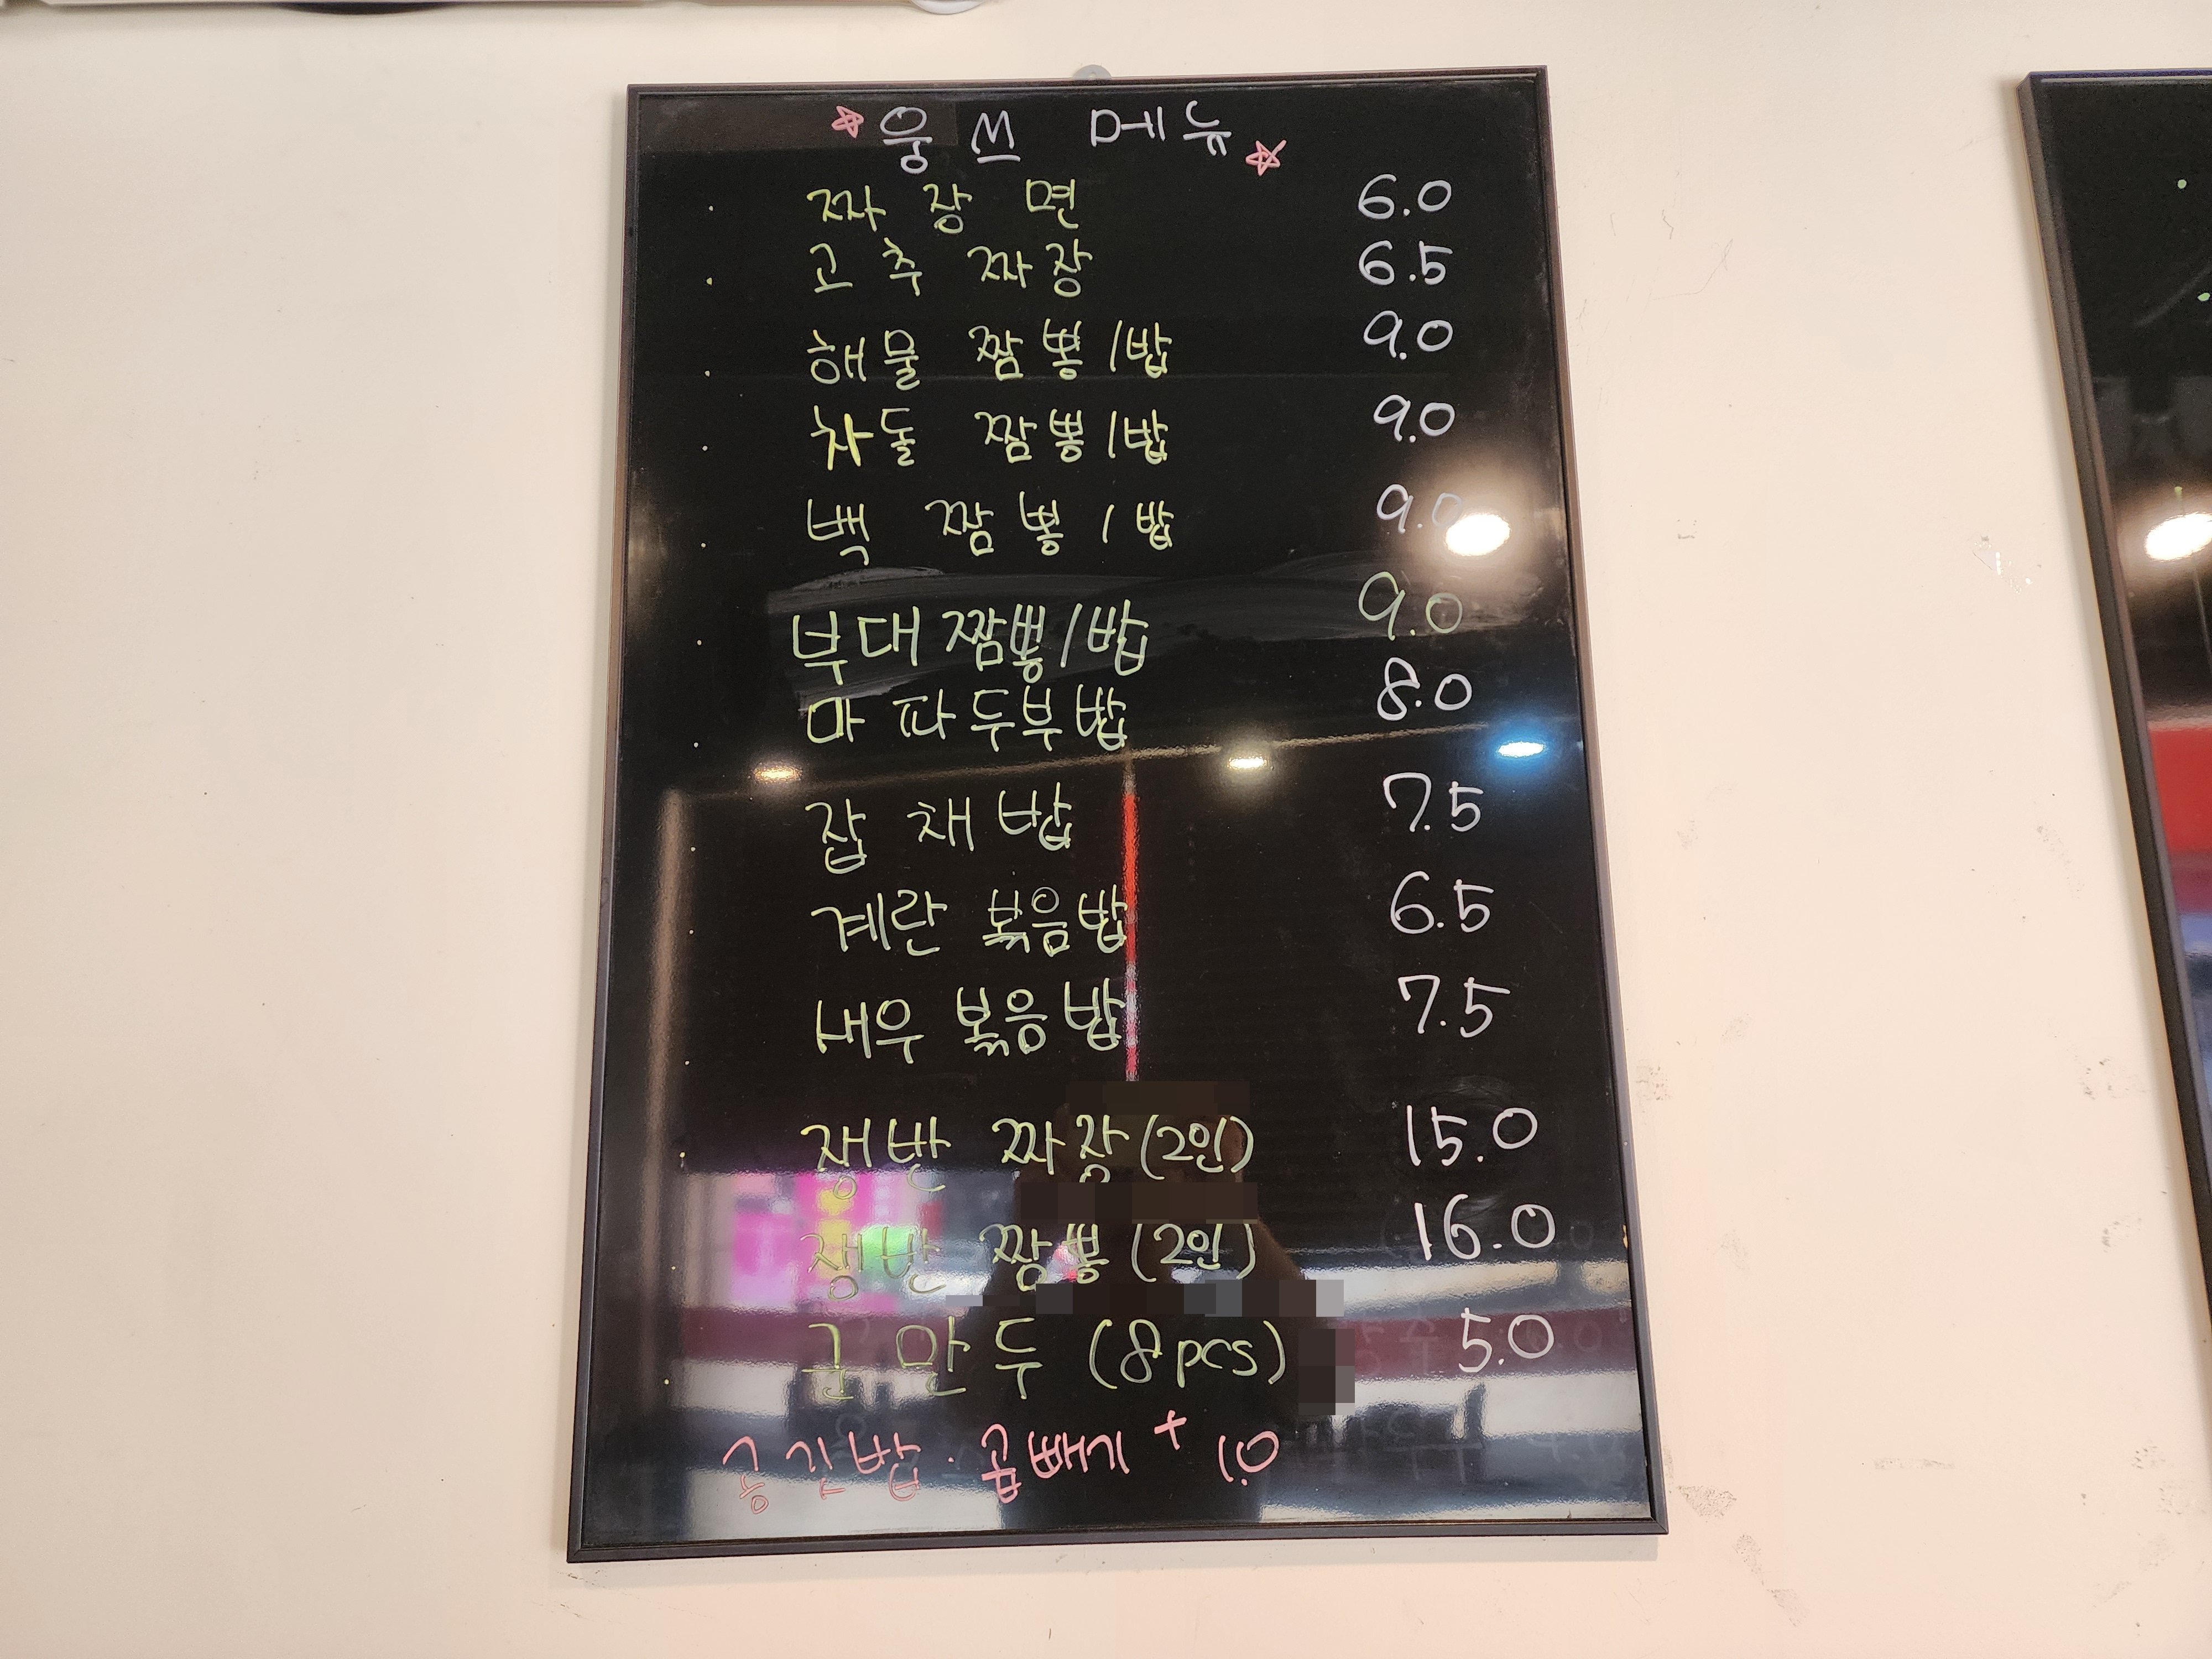 ☆웅쓰 메뉴☆
· 짜장면 6.0
· 고추 짜장 6.5
· 해물 짬뽕/밥 9.0
· 차돌 짬뽕/밥 9.0
· 백 짬뽕/밥 9.0
· 부대 짬뽕/밥 9.0
· 마파두부밥 8.0
· 잡채밥 7.5
· 계란 볶음밥 6.5
· 새우 볶음밥 7.5
· 쟁반 짜장(2인) 15.0
쟁반 짬뽕(2인) 16.0
· 군만두 (8pcs) 5.0
공깃밥 · 곱빼기 + 1.0